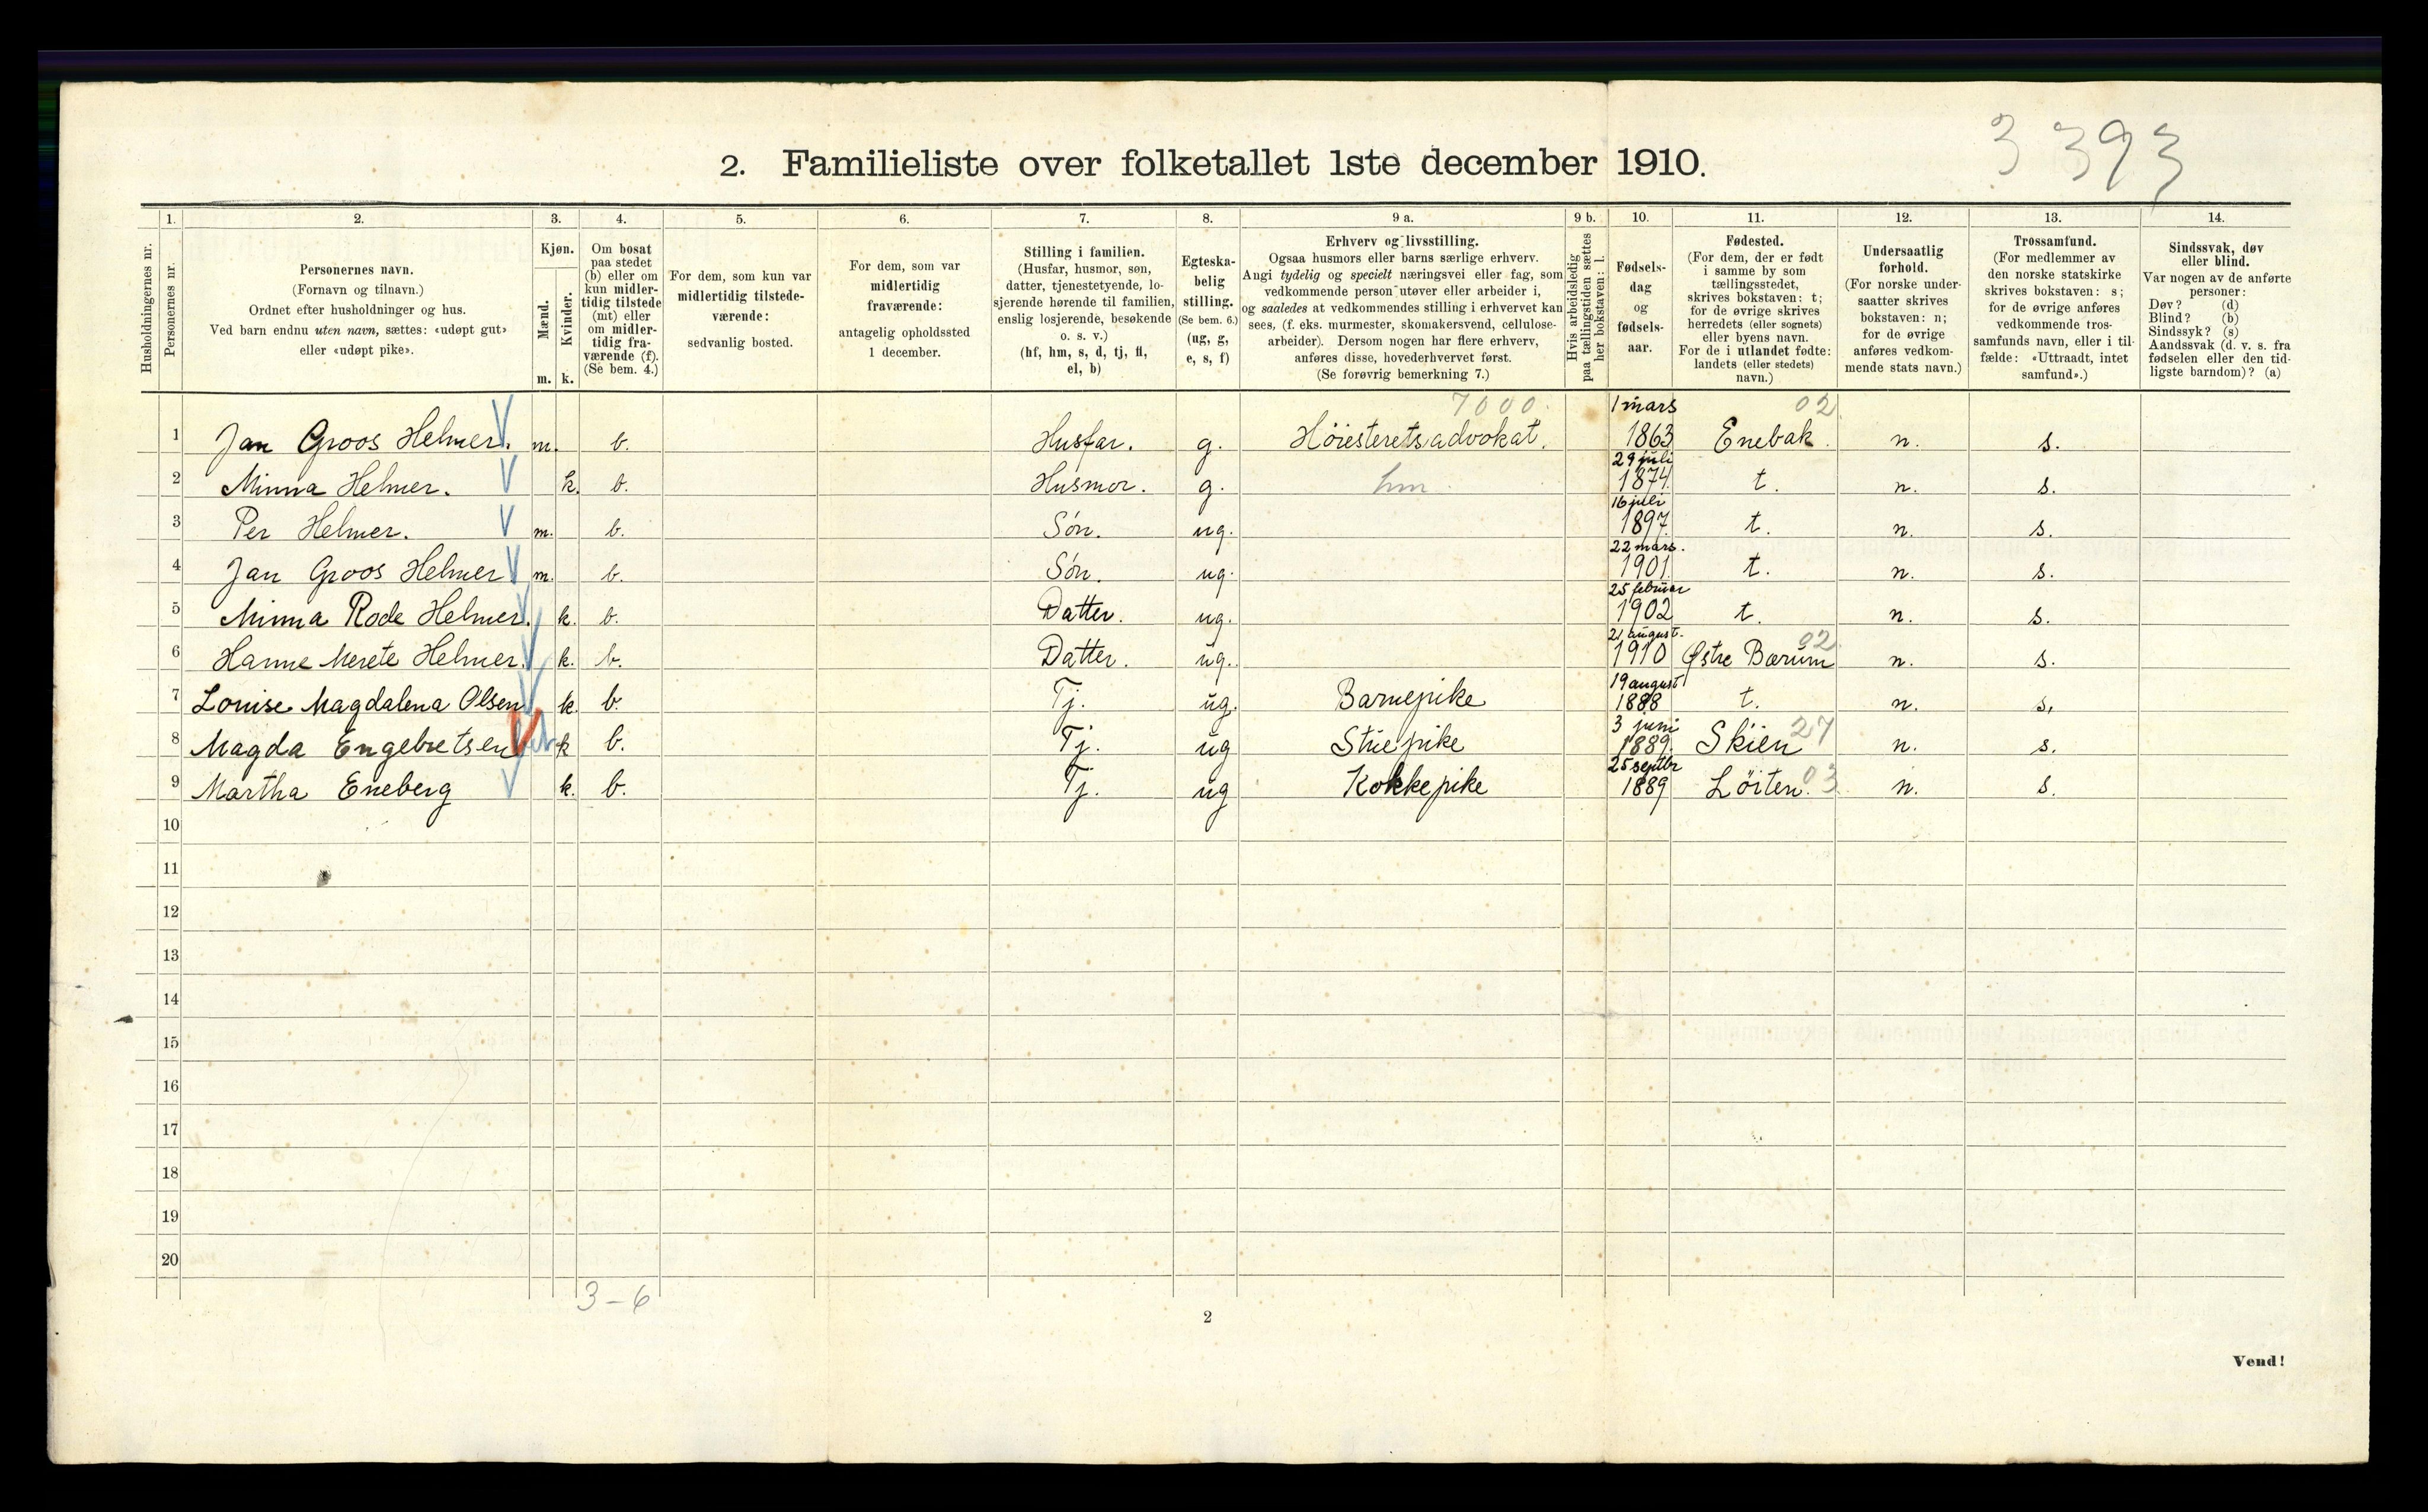 3 393
2. Familieliste over folketallet 1ste december 1910.
1. 2. 3. 4. 5. 6. 7. 8. 9 a. 9 b. 10. 11. 12. 13. 14.
Husholdningernes nr.
Personernes nr.
Personernes navn.
(Fornavn og tilnavn.)
Ordnet efter husholdninger og hus.
Ved barn endnu uten navn, sættes: «udøpt gut»
eller «udøpt pike».
Kjøn.
Mænd.
Kvinder.
m. k.
Om bosat
paa stedet
(b) eller om
kun midler-
tidig tilstede
(mt) eller
om midler-
tidig fra-
værende (f).
(Se bem. 4.)
For dem, som kun var
midlertidig tilstede-
værende:
sedvanlig bosted.
For dem, som var
midlertidig
fraværende:
antagelig opholdssted
1 december.
Stilling i familien.
(Husfar, husmor, søn,
datter, tjenestetyende, lo-
sjerende hørende til familien,
enslig losjerende, besøkende
o. s. v.)
(hf, hm, s, d, tj, fl,
el, b)
Egteska-
belig
stilling.
(Se bem. 6.)
(ug, g,
e, s, f)
Erhverv og livsstilling.
Ogsaa husmors eller barns særlige erhverv.
Angi tydelig og specielt næringsvei eller fag, som
vedkommende person utøver eller arbeider i,
og saaledes at vedkommendes stilling i erhvervet kan
sees, (f. eks. murmester, skomakersvend, cellulose-
arbeider). Dersom nogen har flere erhverv,
anføres disse, hovederhvervet først.
(Se forøvrig bemerkning 7.)
Hvis arbeidsledig
paa tællingstiden sættes
her bokstaven: l.
Fødsels-
dag
og
fødsels-
aar.
Fødested.
(For dem, der er født
i samme by som
tællingsstedet,
skrives bokstaven: t;
for de øvrige skrives
herredets (eller sognets)
eller byens navn.
For de i utlandet fødte:
landets (eller stedets)
navn.)
Undersaatlig
forhold.
(For norske under-
saatter skrives
bokstaven: n;
for de øvrige
anføres vedkom-
mende stats navn.)
Trossamfund.
(For medlemmer av
den norske statskirke
skrives bokstaven: s;
for de øvrige anføres
vedkommende tros-
samfunds navn, eller i til-
fælde: «Uttraadt, intet
samfund».)
Sindssvak, døv
eller blind.
Var nogen av de anførte
personer:
Døv? (d)
Blind? (b)
Sindssyk? (s)
Aandssvak (d. v. s. fra
fødselen eller den tid-
ligste barndom)? (a)
7000. 1 mars 02
1 Jan Groos Helmer. m. b. Husfar. g. Höiesteretsadvokat. 1863 Enebak. n. s.
29 juli
2 Minna Helmer. k. b. Husmor. g. hm 1874. t. n. s.
16 juli
3 Per Helmer. m. b. Sön. ug. 1897. t. n. s.
22 mars.
4 Jan Groos Helmer m. b. Sön. ug. 1901. t. n. s.
25 februar
5 Minna Rode Helmer. k. b. Datter. ug. 1902 t. n. s.
21 august. 02
6 Hanne Merete Helmer. k. b. Datter. ug. 1910 Østre Bærum n. s.
19 august
7 Louise Magdalena Olsen k. b. Tj. ug. Barnepike 1888 t. n. s.
3 juni 27
8 Magda Engebretsen k b. Tj. ug Stuepike 1889. Skien n. s.
25 septbr 03
9 Martha Eneberg k. b. Tj. ug Kokkepike 1889 Löiten. n. s.
10
11
12
13
14
15
16
17
18
19
20
3-6
2
Vend!